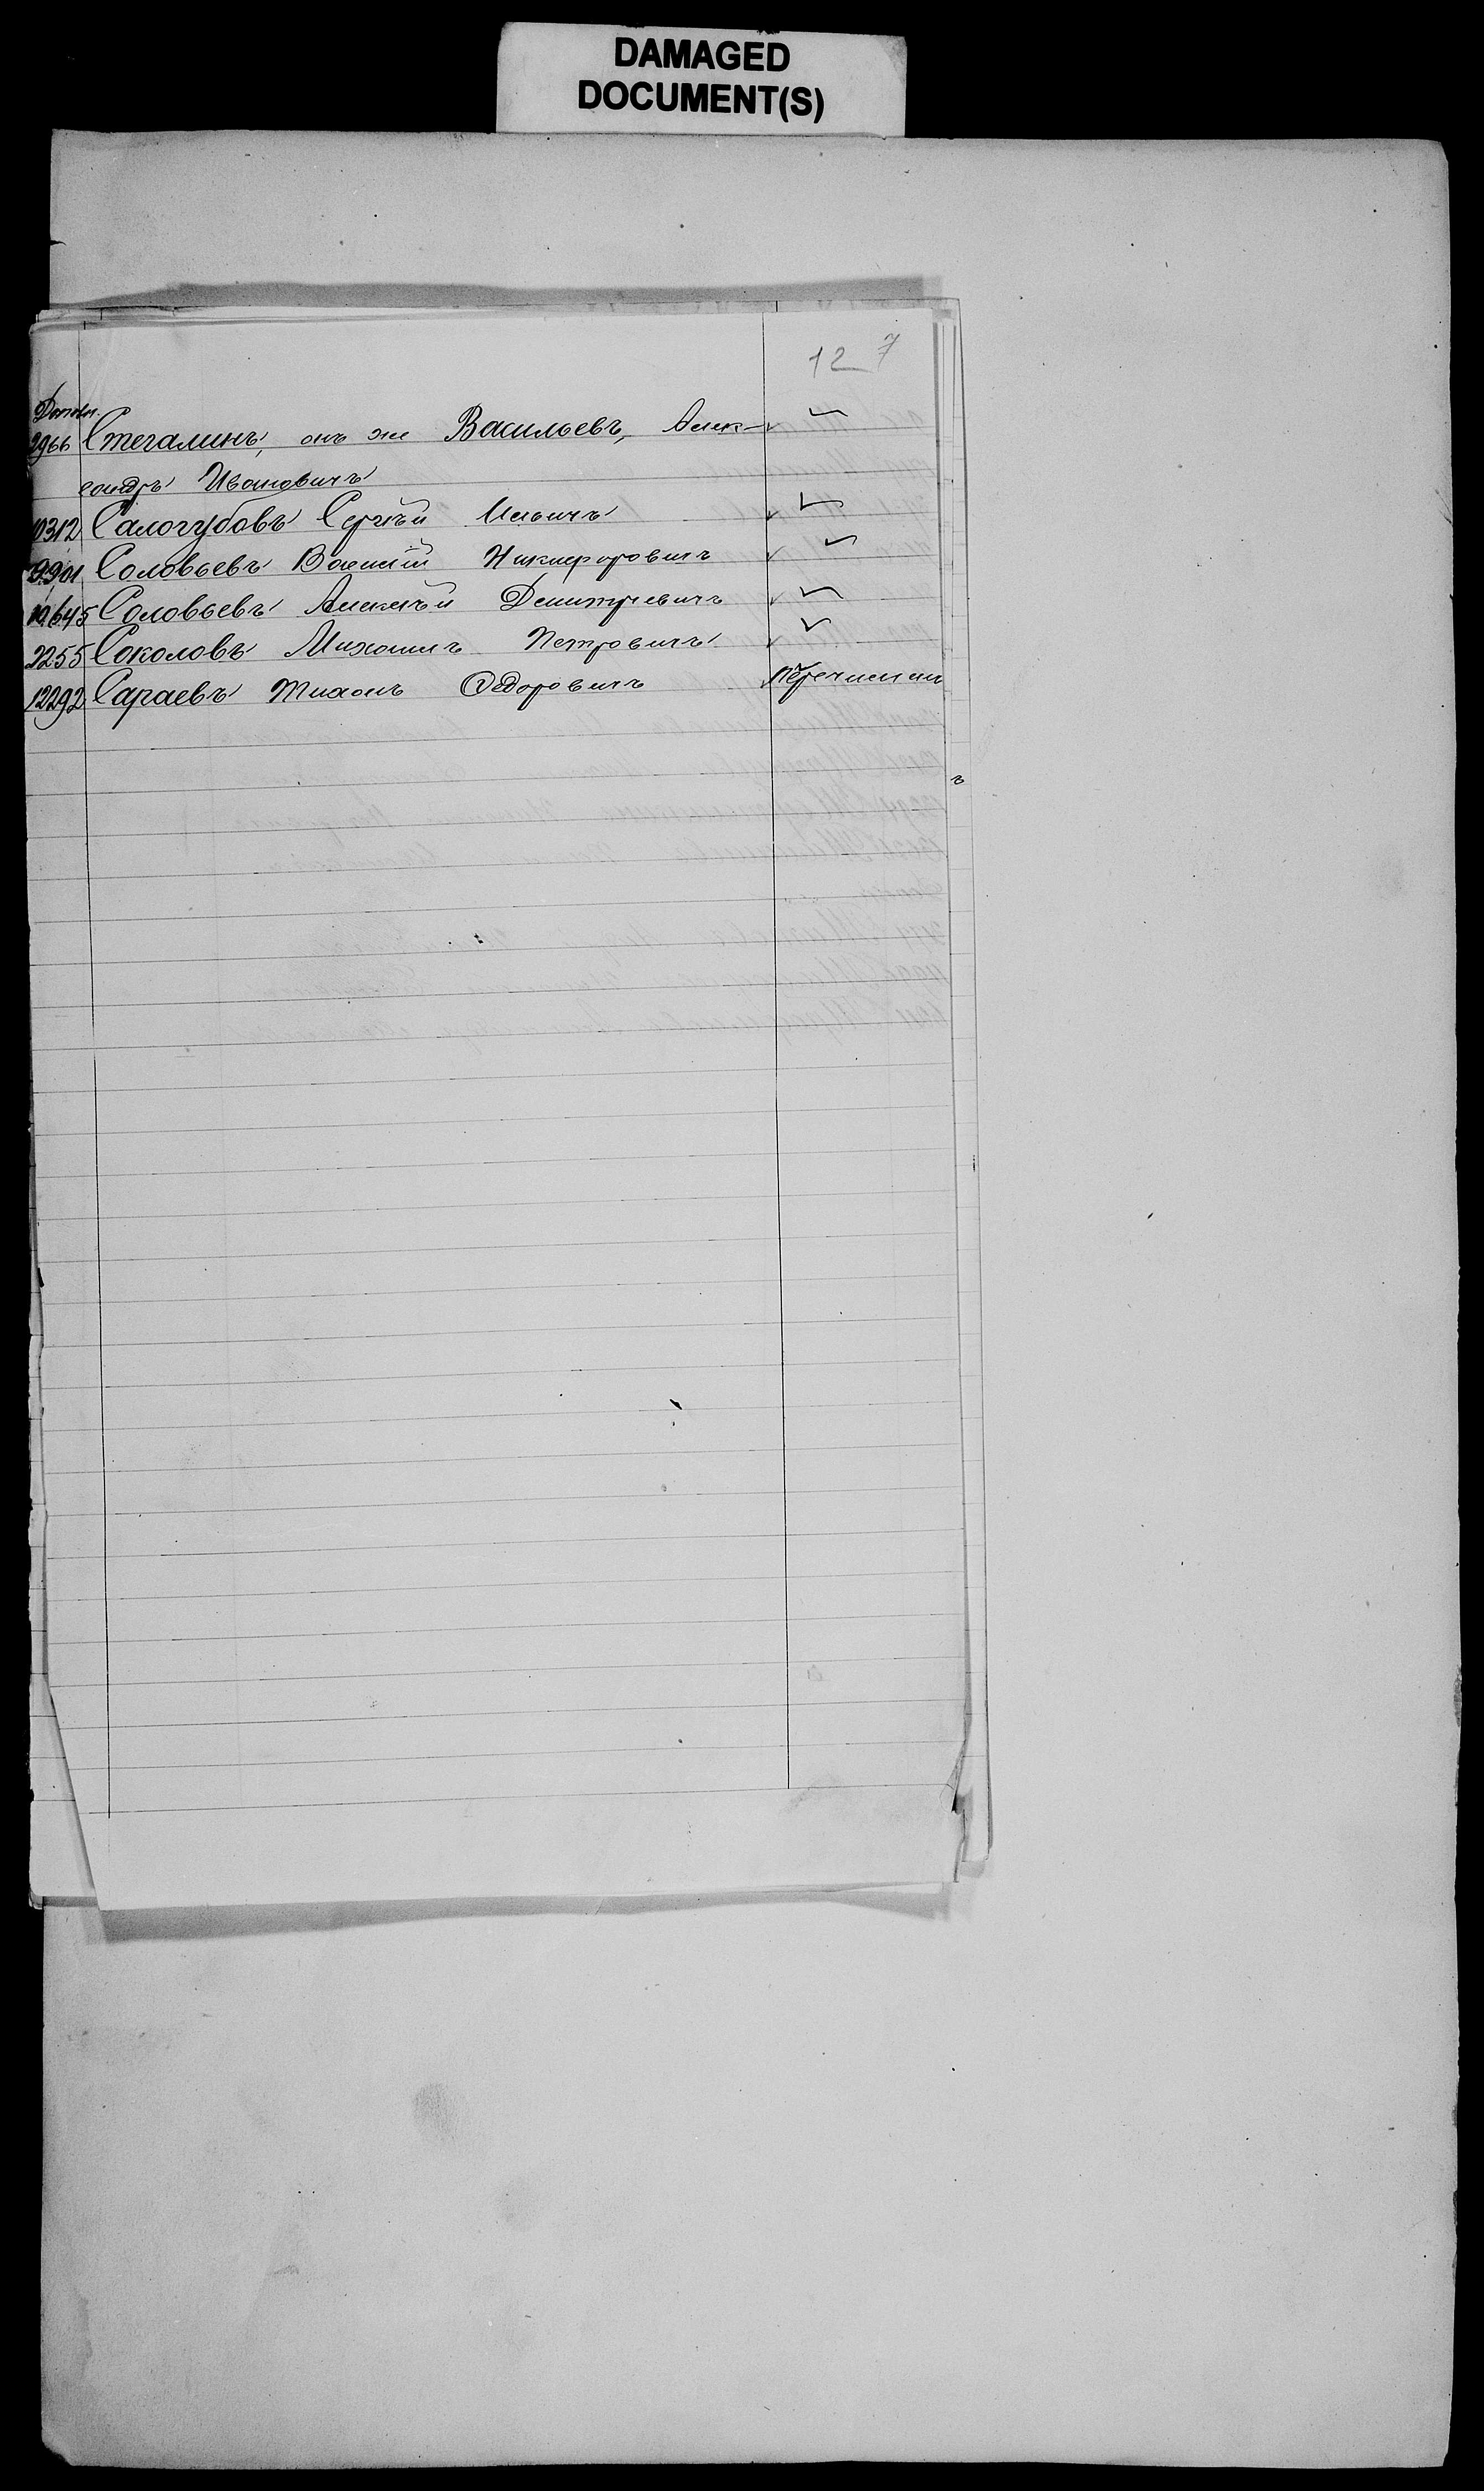 DAMAGED
DOCUMENT(S)
12 7
Дополн.
2966 Стегалинъ, онъ же Васильевъ, Алек-
сандръ Ивановичъ
10312 Салогубовъ Сергѣй Ильичъ
9901 Соловьевъ Василій Никифоровичъ
10645 Соловьевъ Алексѣй Дмитріевичъ
2255 Соколовъ Михаилъ Петровичъ
12292 Сараевъ Тихонъ Ѳедоровичъ Перечислен